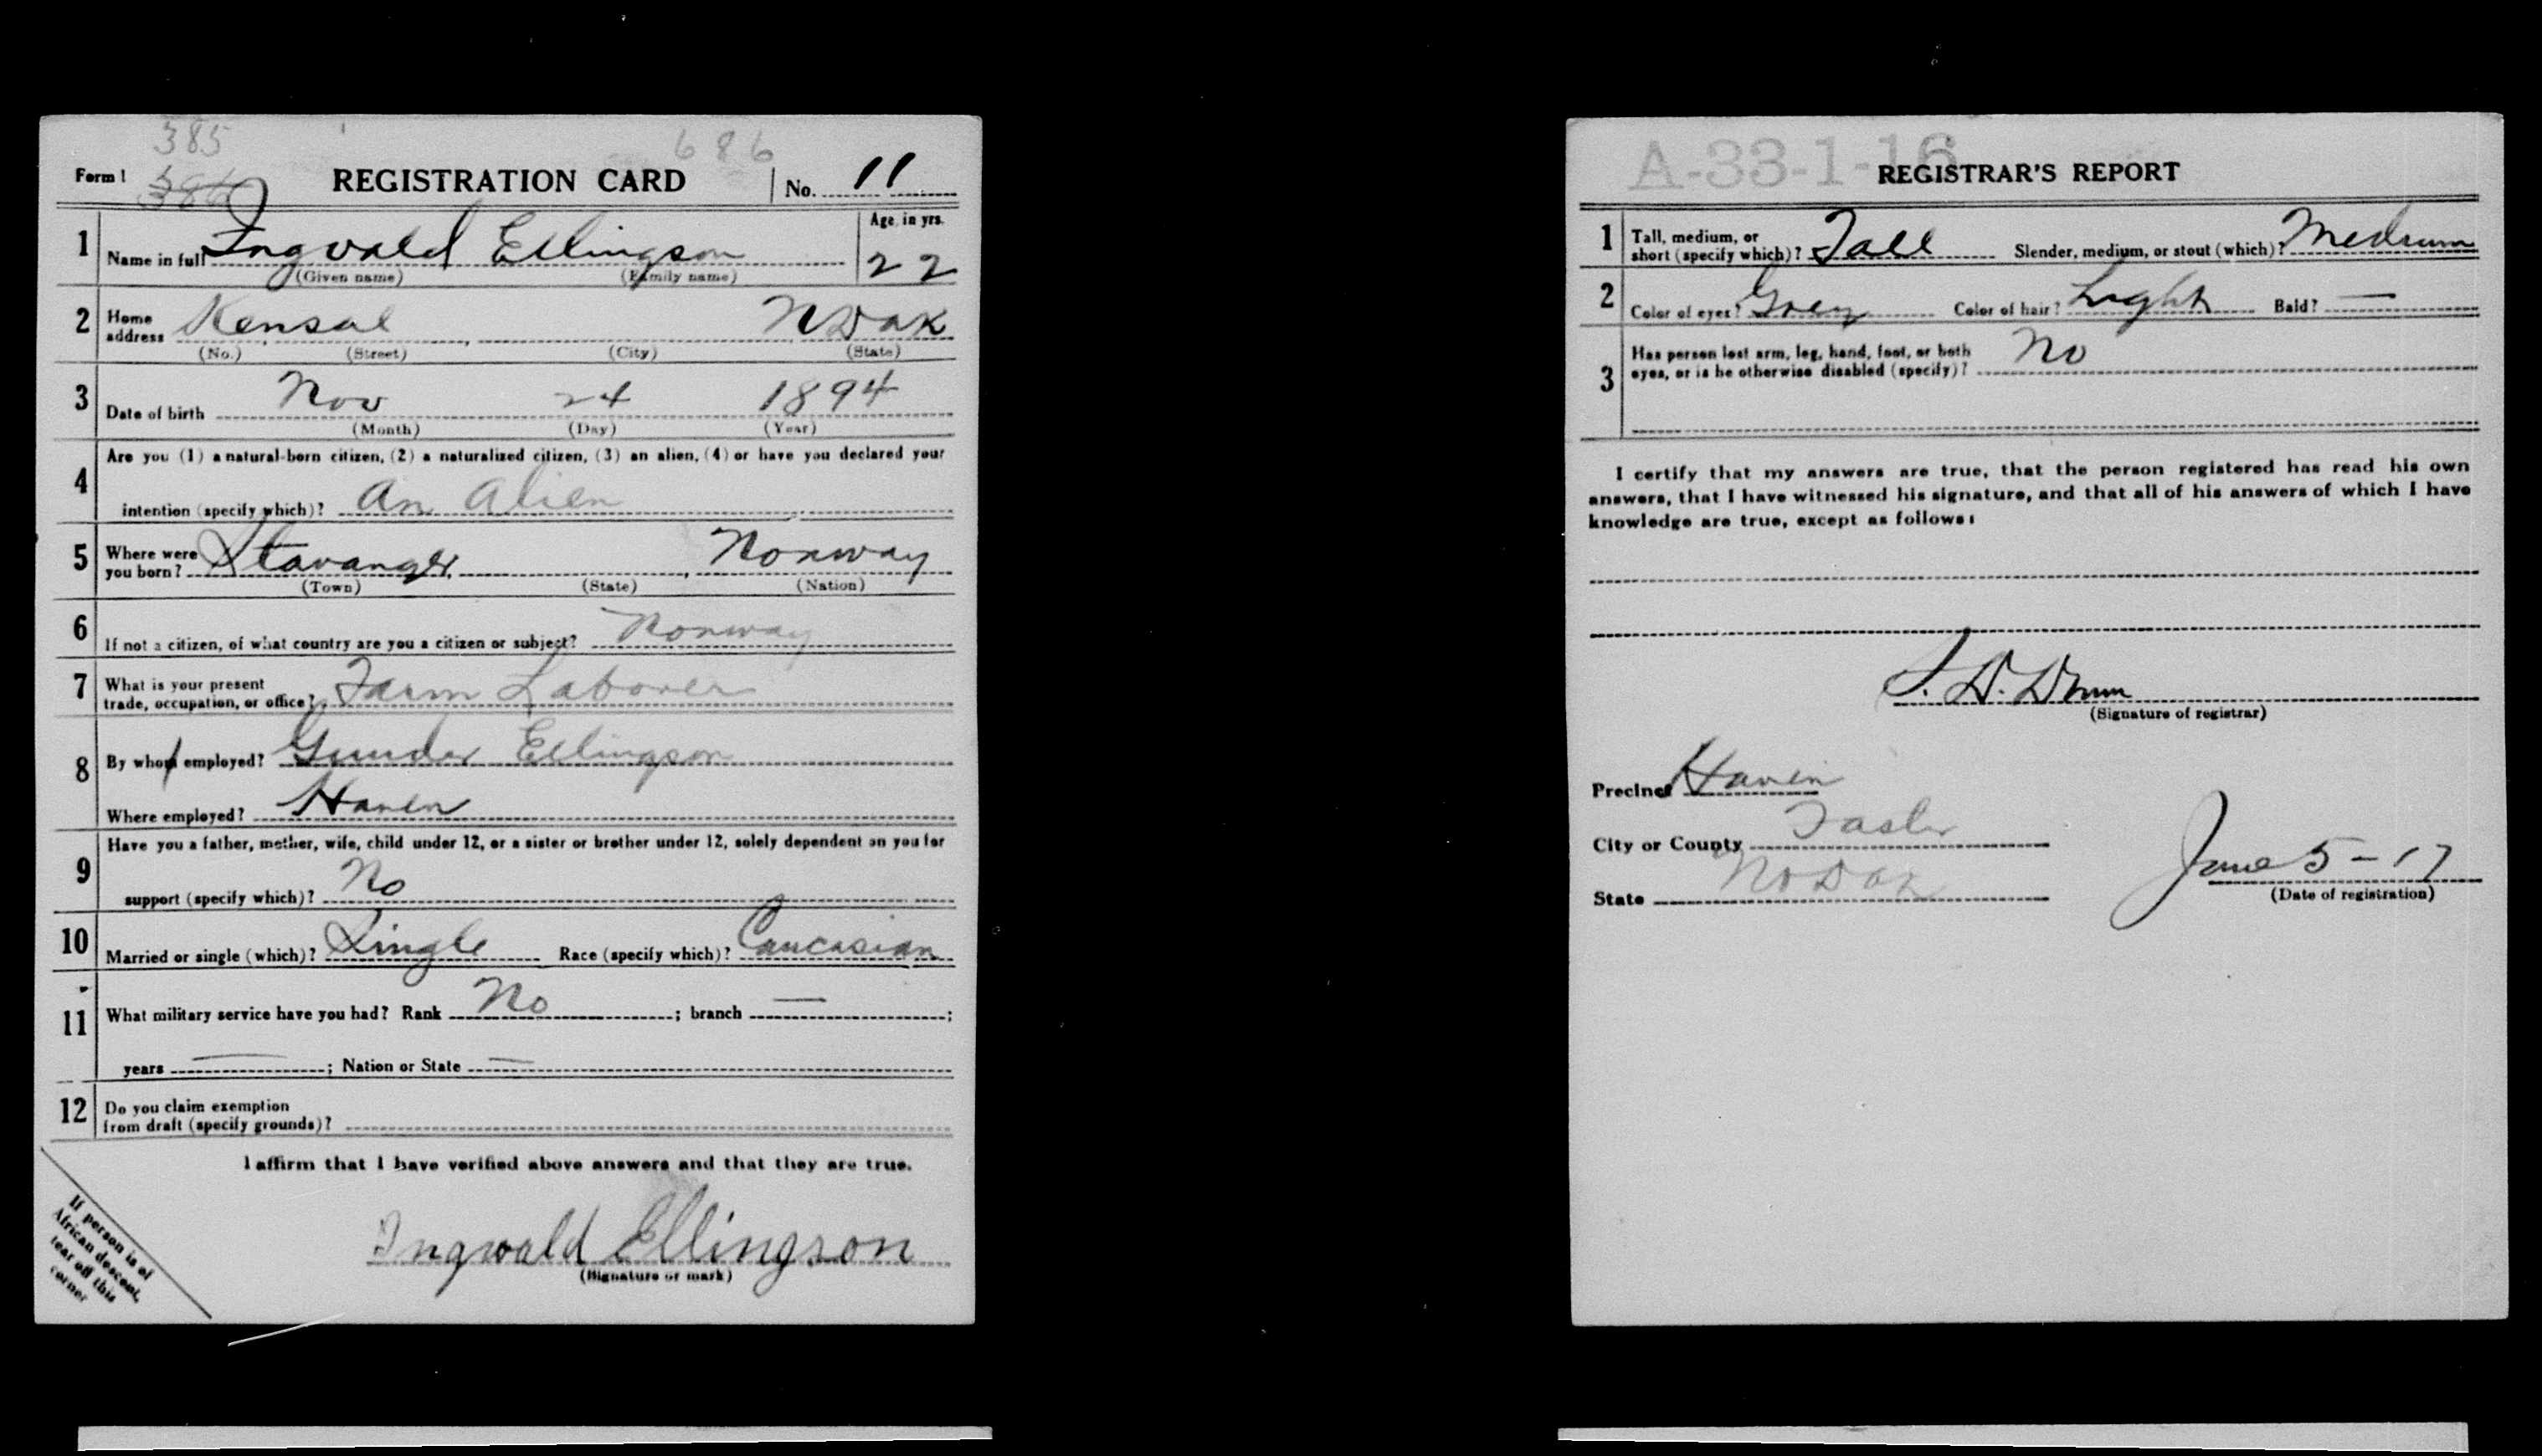 385
686
Form 1 386 REGISTRATION CARD No. 11
1 Name in full Ingvald Ellingson Age, in yrs. 22
(Given name) (Family name)
2 Home address Kensal N Dak
(No.) (Street) (City) (State)
3 Date of birth Nov 24 1894
(Month) (Day) (Year)
4 Are you (1) a natural-born citizen, (2) a naturalized citizen, (3) an alien, (4) or have you declared your
intention (specify which)? An Alien
5 Where were you born? Stavanger, Norway
(Town) (State) (Nation)
6 If not a citizen, of what country are you a citizen or subject? Norway
7 What is your present trade, occupation, or office? Farm Laborer
8 By whom employed? Gunder Ellingson
Where employed? Haven
9 Have you a father, mother, wife, child under 12, or a sister or brother under 12, solely dependent on you for
support (specify which)? No
10 Married or single (which)? Single Race (specify which)? Caucasian
11 What military service have you had? Rank No ; branch — ;
years — ; Nation or State —
12 Do you claim exemption
from draft (specify grounds)?
I affirm that I have verified above answers and that they are true.
Ingwald Ellingson
(Signature or mark)
If person is of
African descent,
tear off this
corner
A-33-1-16
REGISTRAR'S REPORT
1 Tall, medium, or
short (specify which)? Tall Slender, medium, or stout (which)? Medium
2 Color of eyes? Grey Color of hair? Light Bald? —
3 Has person lost arm, leg, hand, foot, or both No
eyes, or is he otherwise disabled (specify)?
I certify that my answers are true, that the person registered has read his own
answers, that I have witnessed his signature, and that all of his answers of which I have
knowledge are true, except as follows:
(Signature of registrar)
Precinct Haven
City or County Foster
State No Dak June 5 - 17
(Date of registration)